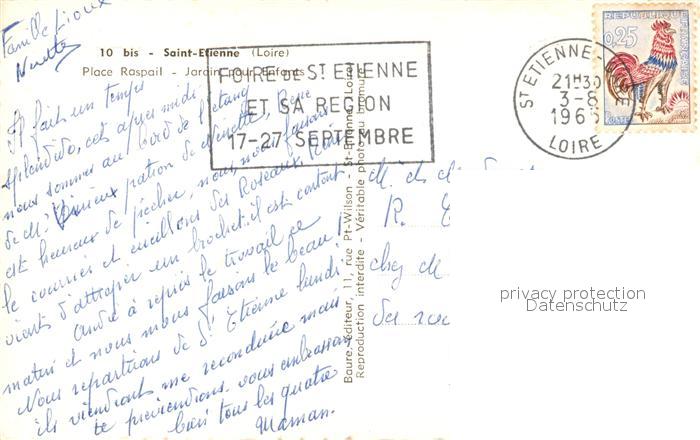 Famille Lioux
Ninette
10 bis - Saint-Etienne (Loire)
Place Raspail - Jardin pour Enfants
FOIRE DE ST ETIENNE
ET SA REGION
17-27 SEPTEMBRE
ST ETIENNE
21H30
3-8
196
LOIRE
REPUBLIQUE FRANÇAISE
0,25
POSTES
Il fait un temps
splendide, cet après midi
nous sommes au bord de l'étang
de Mr patron de Ninette, René
est heureux de pêcher, nous, nous faisons
le courrier et cueillons des Roseaux, René
vient d'attraper un brochet. il est content.
André a repris le travail ce
matin et nous nous faisons le beau!
Nous repartirons de St Etienne lundi
ils viendront me reconduire mais
te préviendrons. vous embrassons
bien tous les quatre
Maman.
Baure, éditeur, 11, rue Pt-Wilson - St-Etienne (Loire)
Reproduction interdite - Véritable photo au bromure
chez M
privacy protection
Datenschutz